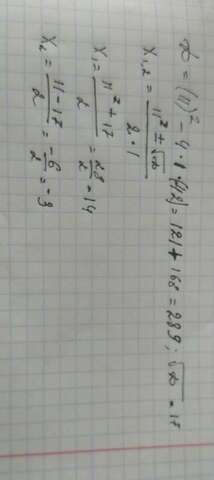 D = (11)² - 4·1·(-42) = 121 + 168 = 289; √D = 17
x₁,₂ = (11 ± √D) / (2·1)
x₁ = (11 + 17) / 2 = 28/2 = 14
x₂ = (11 - 17) / 2 = -6/2 = -3